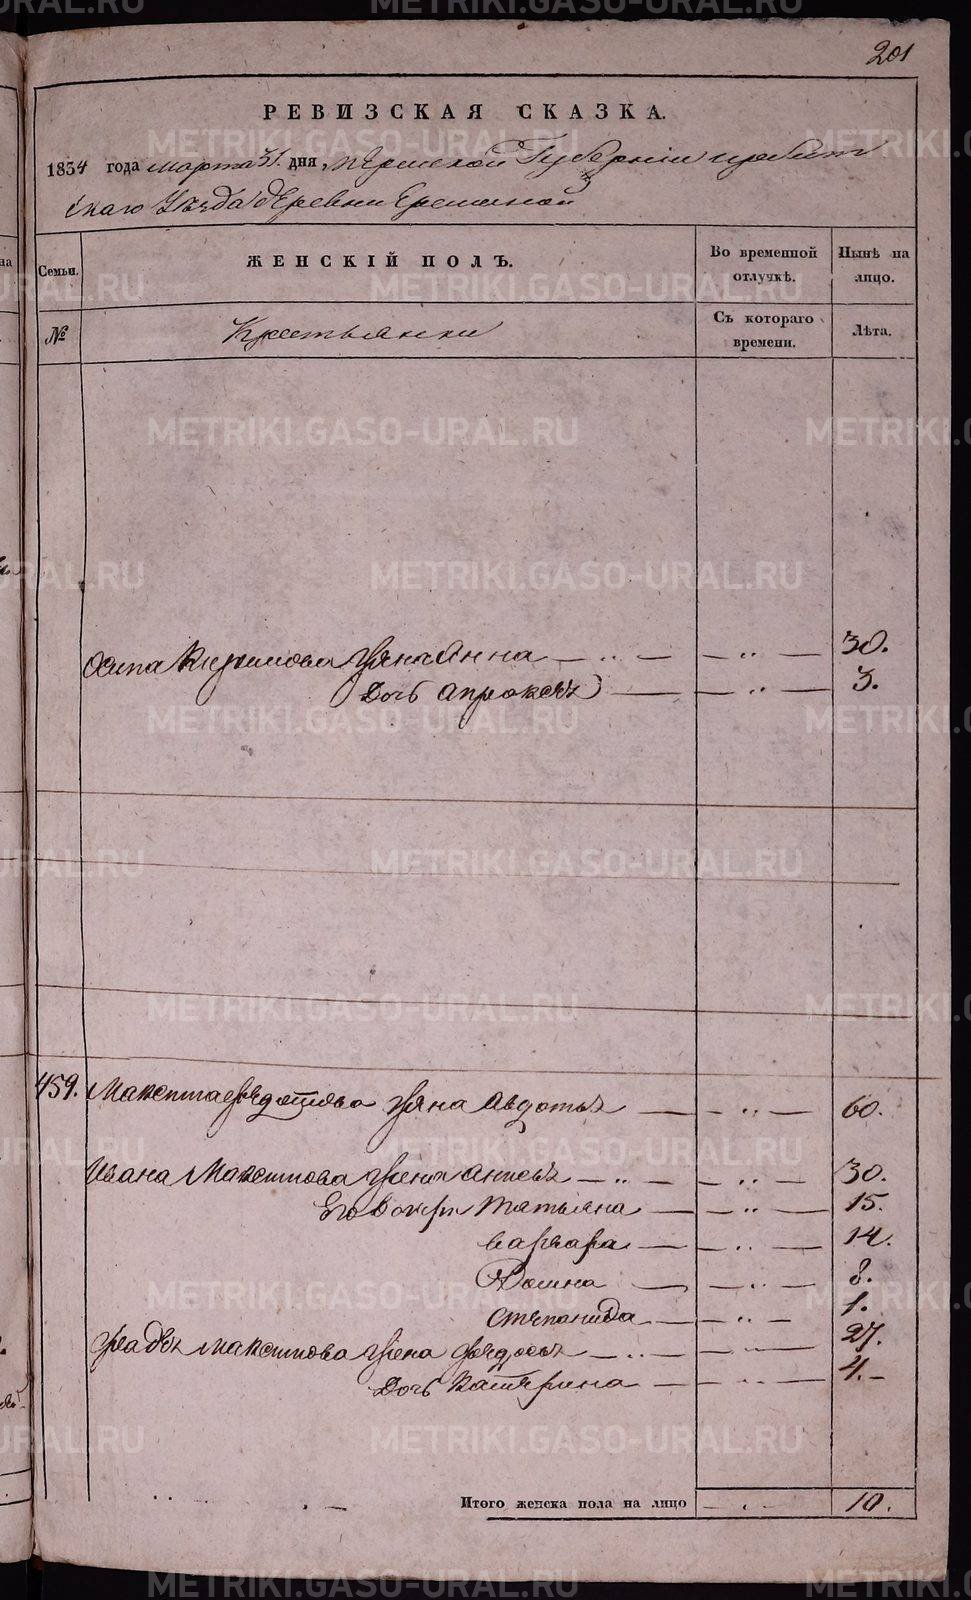 201
РЕВИЗСКАЯ СКАЗКА.
1834 года марта 31. дня Пермской Губернии ирбит
скаго Уезда деревни Еремлиной
Семьи.
ЖЕНСКІЙ ПОЛЪ.
Во временной отлучкѣ.
Нынѣ на лицо.
№
Крестьянки
Съ котораго времени.
Лѣта.
Осипа жена Анна — „ — — „ — 30.
Дочь Апроксенья — — „ — 3.
459. Максима Федотова жена Авдотья — — „ — 60.
Ивана Максимова жена — „ — — „ — 30.
Его дочери Татьяна — — „ — 15.
варвара — — „ — 14.
Домна — — „ — 8.
степанида — „ — 1.
Фадея максимова жена федосья — „ — — „ — 27.
Дочь Катерина — — „ — 4.
Итого женска пола на лицо — „ — 10.
METRIKI.GASO-URAL.RU